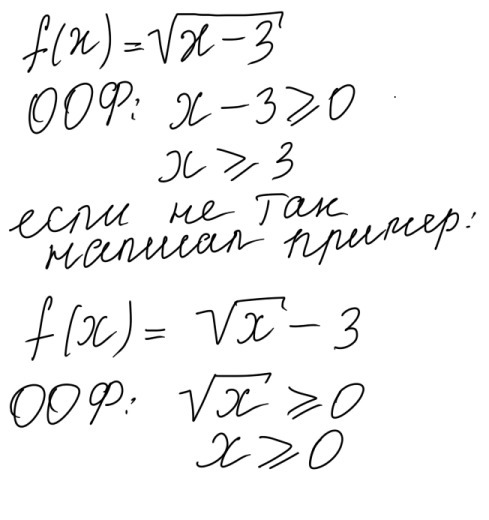 f(x)=√x-3
ООФ: x-3⩾0
x⩾3
если не так
написал пример:
f(x)= √x - 3
ООФ: √x ⩾0
x⩾0